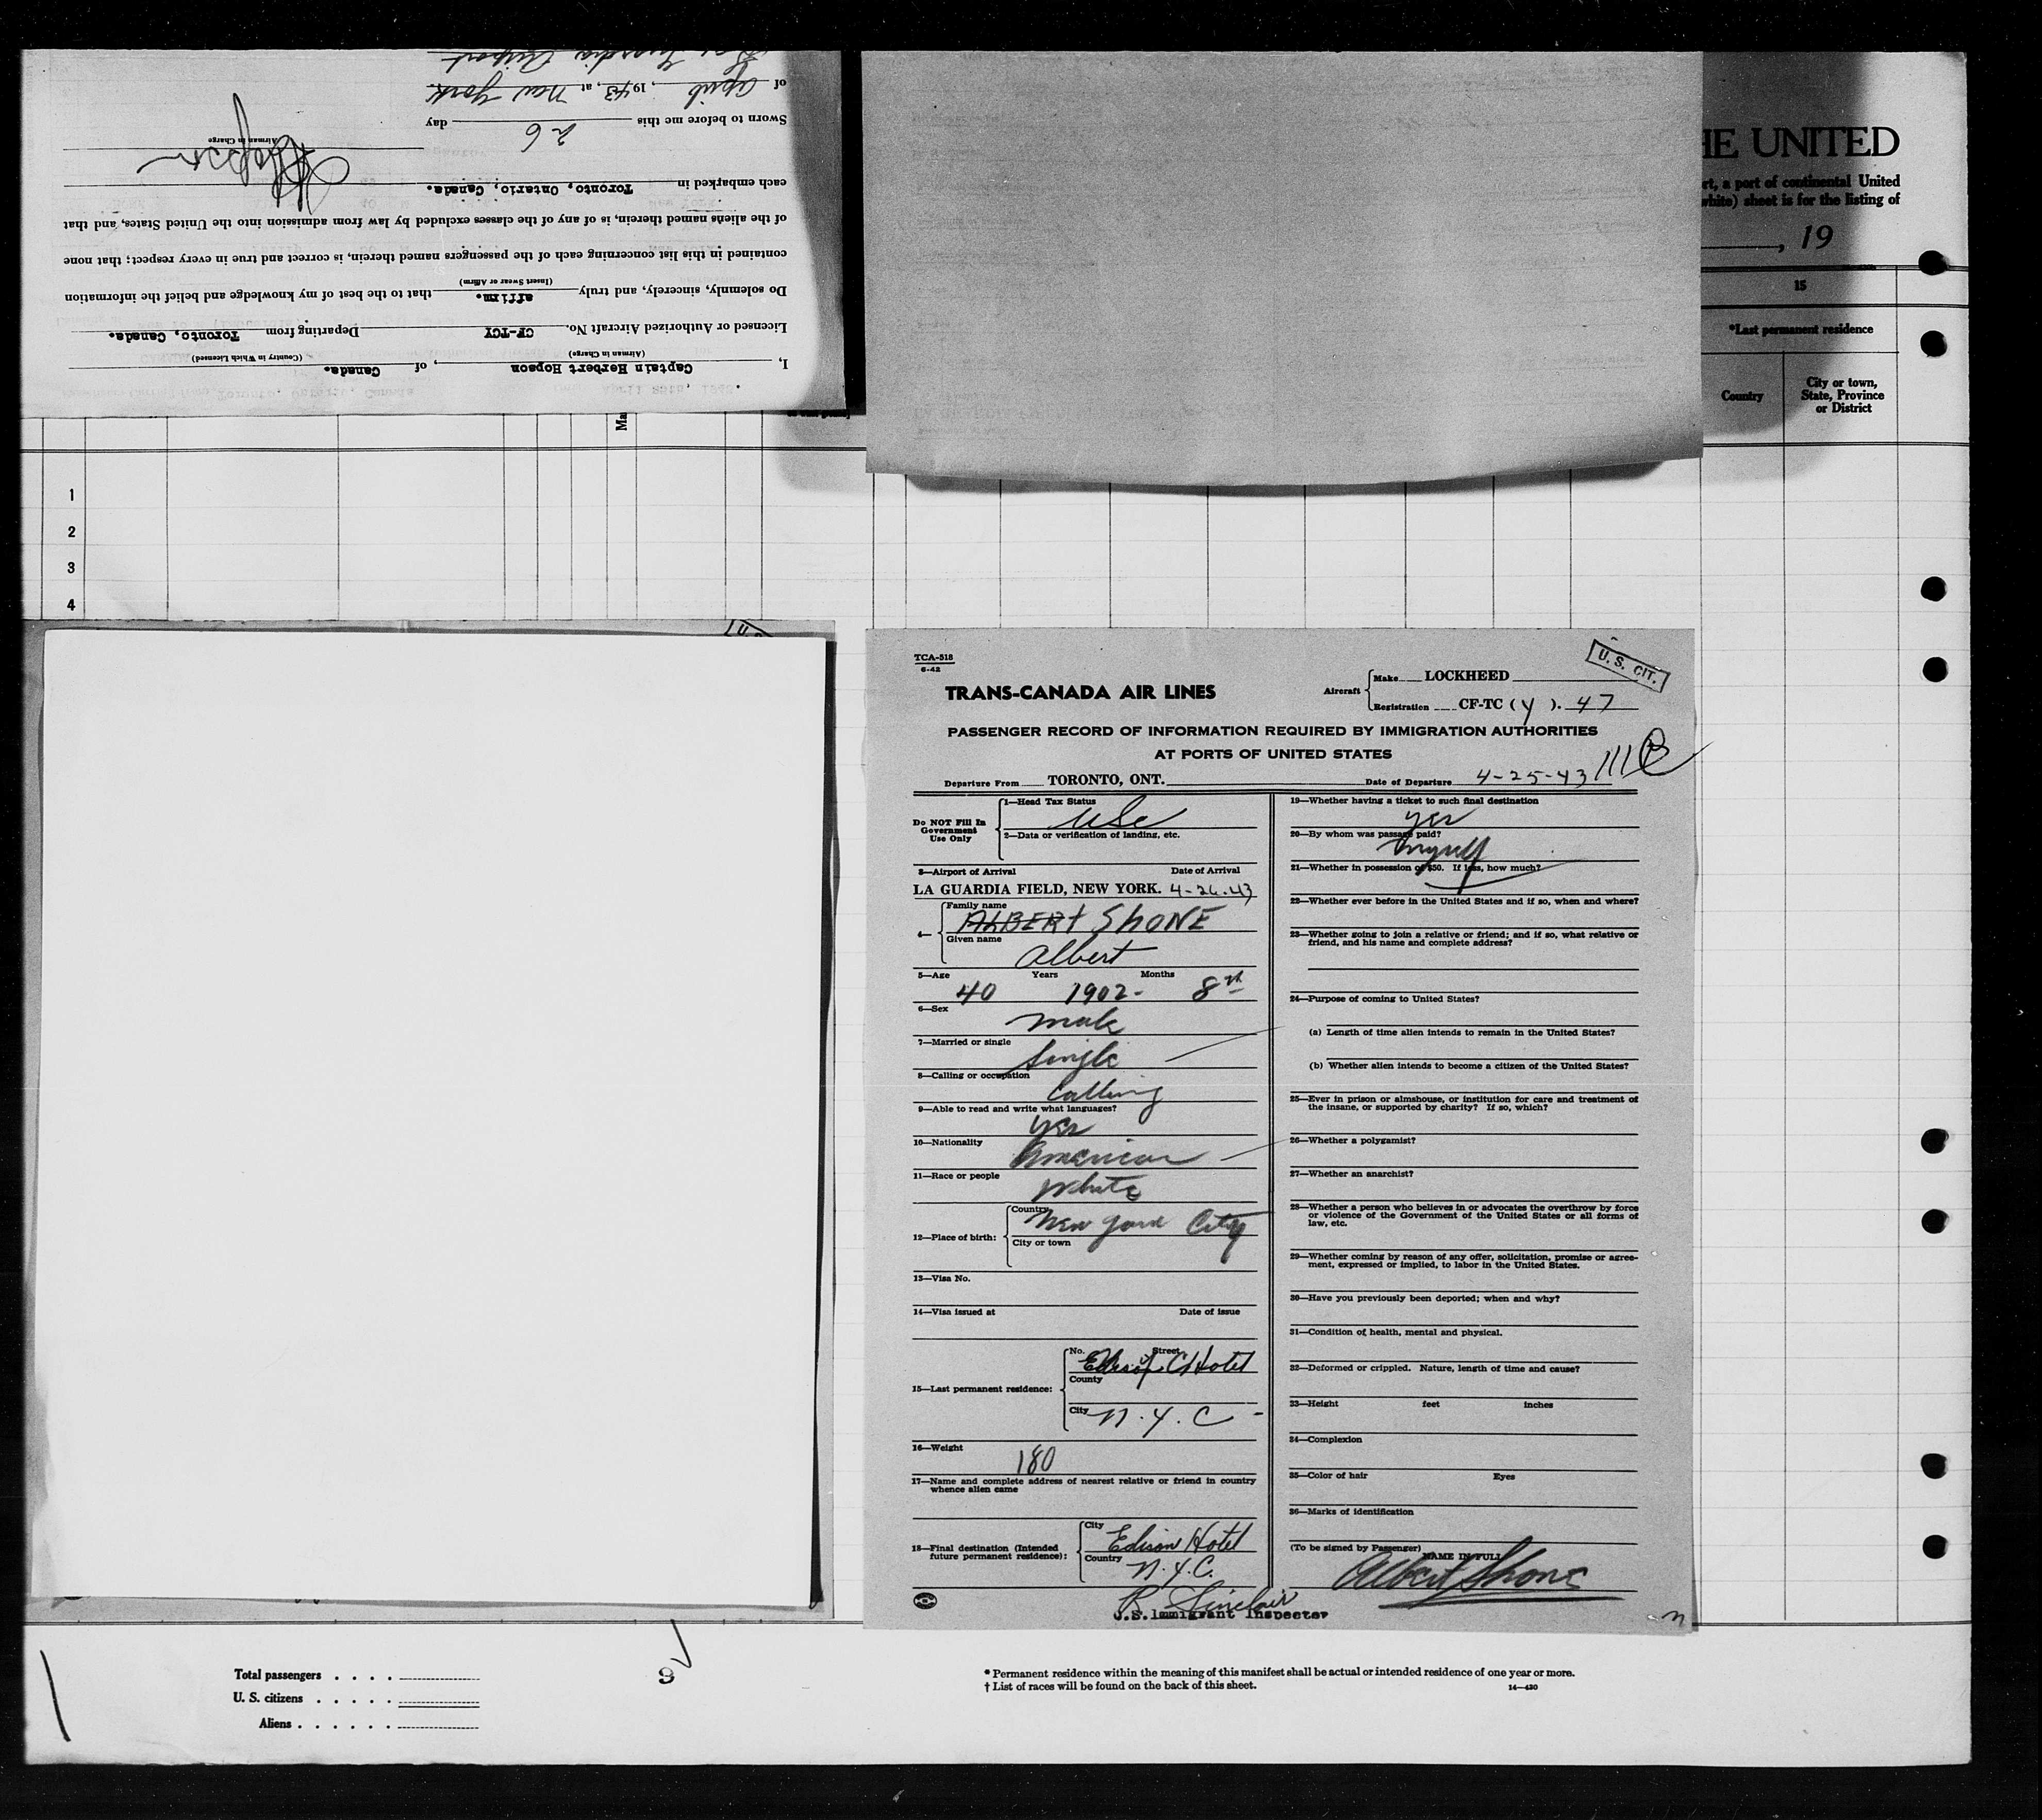 I, Captain Herbert Hopson, of Canada.
(Airman in Charge) (Country in Which Licensed)
Licensed or Authorized Aircraft No. CF-TCY Departing from Toronto, Canada.
Do solemnly, sincerely, and truly affirm. that to the best of my knowledge and belief the information
(Insert Swear or Affirm)
contained in this list concerning each of the passengers named therein, is correct and true in every respect; that none
of the aliens named therein, is of any of the classes excluded by law from admission into the United States, and that
each embarked in Toronto, Ontario, Canada.
Airman in Charge
Sworn to before me this 26 day
of April, 1943, at New York
La Guardia Airport
HE UNITED
rt, a port of continental United
white) sheet is for the listing of
, 19
15
*Last permanent residence
Country
City or town,
State, Province
or District
1
2
3
4
TCA-518
6-42
TRANS-CANADA AIR LINES
Aircraft
Make LOCKHEED
Registration CF-TC (Y). 47
U. S. CIT.
PASSENGER RECORD OF INFORMATION REQUIRED BY IMMIGRATION AUTHORITIES
AT PORTS OF UNITED STATES
Departure From TORONTO, ONT. Date of Departure 4-25-43
Do NOT Fill In
Government
Use Only
1—Head Tax Status
USC
2—Data or verification of landing, etc.
3—Airport of Arrival Date of Arrival
LA GUARDIA FIELD, NEW YORK. 4-26-43
4—
Family name
ALBERT SHONE
Given name
Albert
5—Age Years Months
40 1902- 8
6—Sex
male
7—Married or single
Single
8—Calling or occupation
Calling
9—Able to read and write what languages?
yes
10—Nationality
American
11—Race or people
White
12—Place of birth:
Country
New York City
City or town
13—Visa No.
14—Visa issued at Date of issue
15—Last permanent residence:
No. Street
Hotel
County
City N.Y.C
16—Weight
180
17—Name and complete address of nearest relative or friend in country
whence alien came
18—Final destination (Intended
future permanent residence):
City
Edison Hotel
Country
N.Y.C.
R Sinclair
U.S. Immigrant Inspector
19—Whether having a ticket to such final destination
yes
20—By whom was passage paid?
myself
21—Whether in possession of $50. If less, how much?
22—Whether ever before in the United States and if so, when and where?
23—Whether going to join a relative or friend; and if so, what relative or
friend, and his name and complete address?
24—Purpose of coming to United States?
(a) Length of time alien intends to remain in the United States?
(b) Whether alien intends to become a citizen of the United States?
25—Ever in prison or almshouse, or institution for care and treatment of
the insane, or supported by charity? If so, which?
26—Whether a polygamist?
27—Whether an anarchist?
28—Whether a person who believes in or advocates the overthrow by force
or violence of the Government of the United States or all forms of
law, etc.
29—Whether coming by reason of any offer, solicitation, promise or agree-
ment, expressed or implied, to labor in the United States.
30—Have you previously been deported; when and why?
31—Condition of health, mental and physical.
32—Deformed or crippled. Nature, length of time and cause?
33—Height feet inches
34—Complexion
35—Color of hair Eyes
36—Marks of identification
(To be signed by Passenger) NAME IN FULL
Albert Shone
Total passengers
U. S. citizens
Aliens
9
* Permanent residence within the meaning of this manifest shall be actual or intended residence of one year or more.
† List of races will be found on the back of this sheet.
14—420